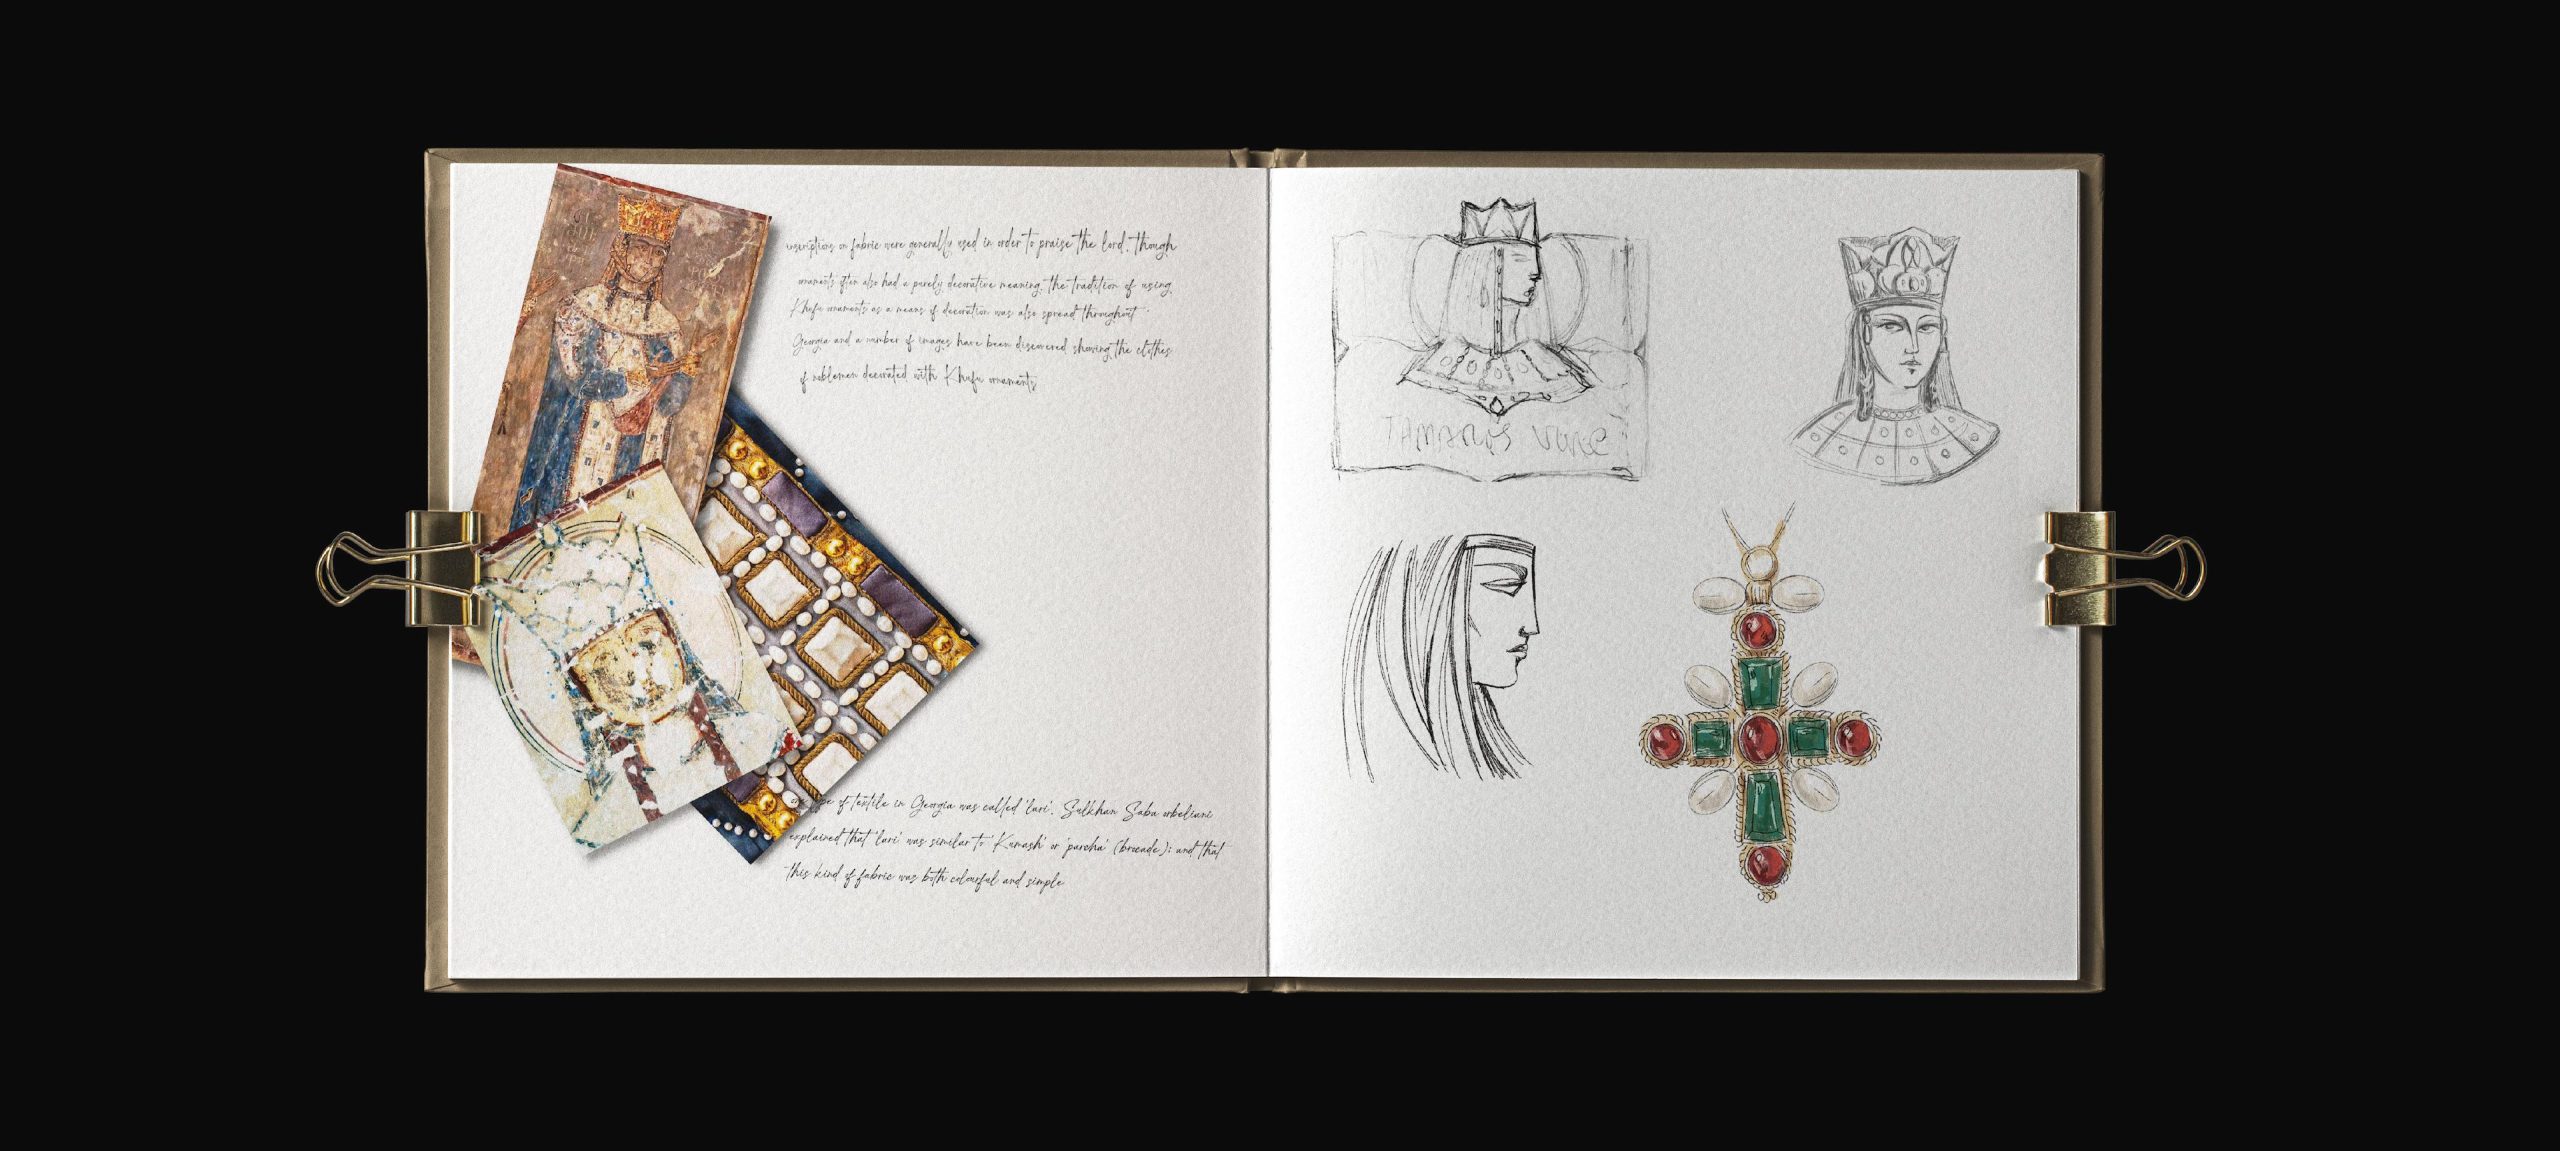 inscriptions on fabric were generally used in order to praise the lord. though
ornaments often also had a purely decorative meaning. the tradition of using
Khufu ornaments as a means of decoration was also spread throughout
Georgia and a number of images have been discovered showing the clothes
of noblemen decorated with Khufu ornaments
of textile in Georgia was called 'lari'. Sulkhan Saba orbeliani
explained that 'lari' was similar to 'Kamash' or 'parcha' (brocade); and that
this kind of fabric was both colourful and simple
TAMARIS